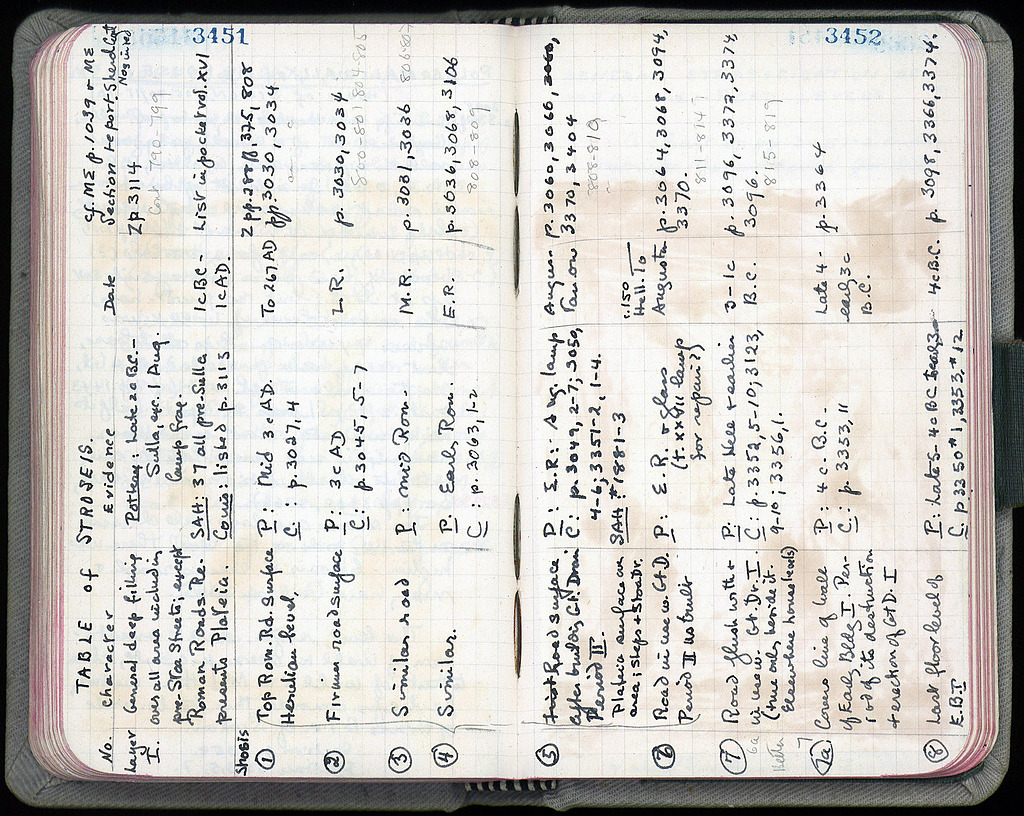 3451
TABLE of STROSEIS.
No. character Evidence Date Section report. Sherd Cont
cf. ME p. 1039 + ME
Layer I. General deep filling
over all area widened in
pre-Stoa Streets, except
Roman Roads. Re-
presents Plateia.
Pottery: Late 2c B.C. –
Sulla, etc. Aug.
lamp frag.
SAH: 37 all pre-Sulla
Coins: listed p. 3115
1c BC –
1c AD.
Σ p 3114
Cont 790-799
List in pocket vol. XVI
Strosis
① Top Rom. Rd. Surface
Herulian level,
P: Mid 3c AD.
C: p. 3027, 4
To 267 AD
pp. 3030, 3034
② Firm road surface
P: 3c AD
C: p. 3045, 5-7
L.R.
p. 3030, 3034
800-801, 804-805
③ Similar road
P: mid Rom.
M.R.
p. 3031, 3036
④ Similar.
P: Early Rom.
C: p. 3063, 1-2
E.R.
p. 3036, 3068, 3106
808-809
3452
⑤ Road Surface
after building Gt. Drain
Period III.
Plateia surface over
area; steps + Stoa Dr.
P: E.R.: Aug. lamp
C: p. 3049, 2-7; 3050,
4-6; 3357-2, 1-4.
SAH: #1881-3
Augus-
p. 3060, 3066,
3370, 3404
808-810
⑥ Road in use w. Gt. D.
Period II
P: E.R. glass
(T. XXVII lamp
for repair?)
c. 150
Hell. To
Augustan
p. 3064, 3068, 3094,
3370.
811-814
⑦ Road flush with +
in use w. Gt. Dr. I
(true only beside it.
Elsewhere house levels)
P: Late Hell + earlier
C: p. 3352, 5-10; 3123,
9-10; 3356, 1.
3-1c
B.C.
p. 3096, 3372, 3374
3096.
815-819
6a
7a Cover line of wall
of Early Bldg I. Per-
iod of its destruction
+ erection of Gt D. I
P: 4c. B.C.
C: p. 3353, 11
Late 4-
early 3c
B.C.
p. 3364
⑧ Last floor level of
E.B. I
P: Late 5-4c BC
C p 3250 #1, 3353, #12
4c B.C.
p. 3098, 3366, 3374.